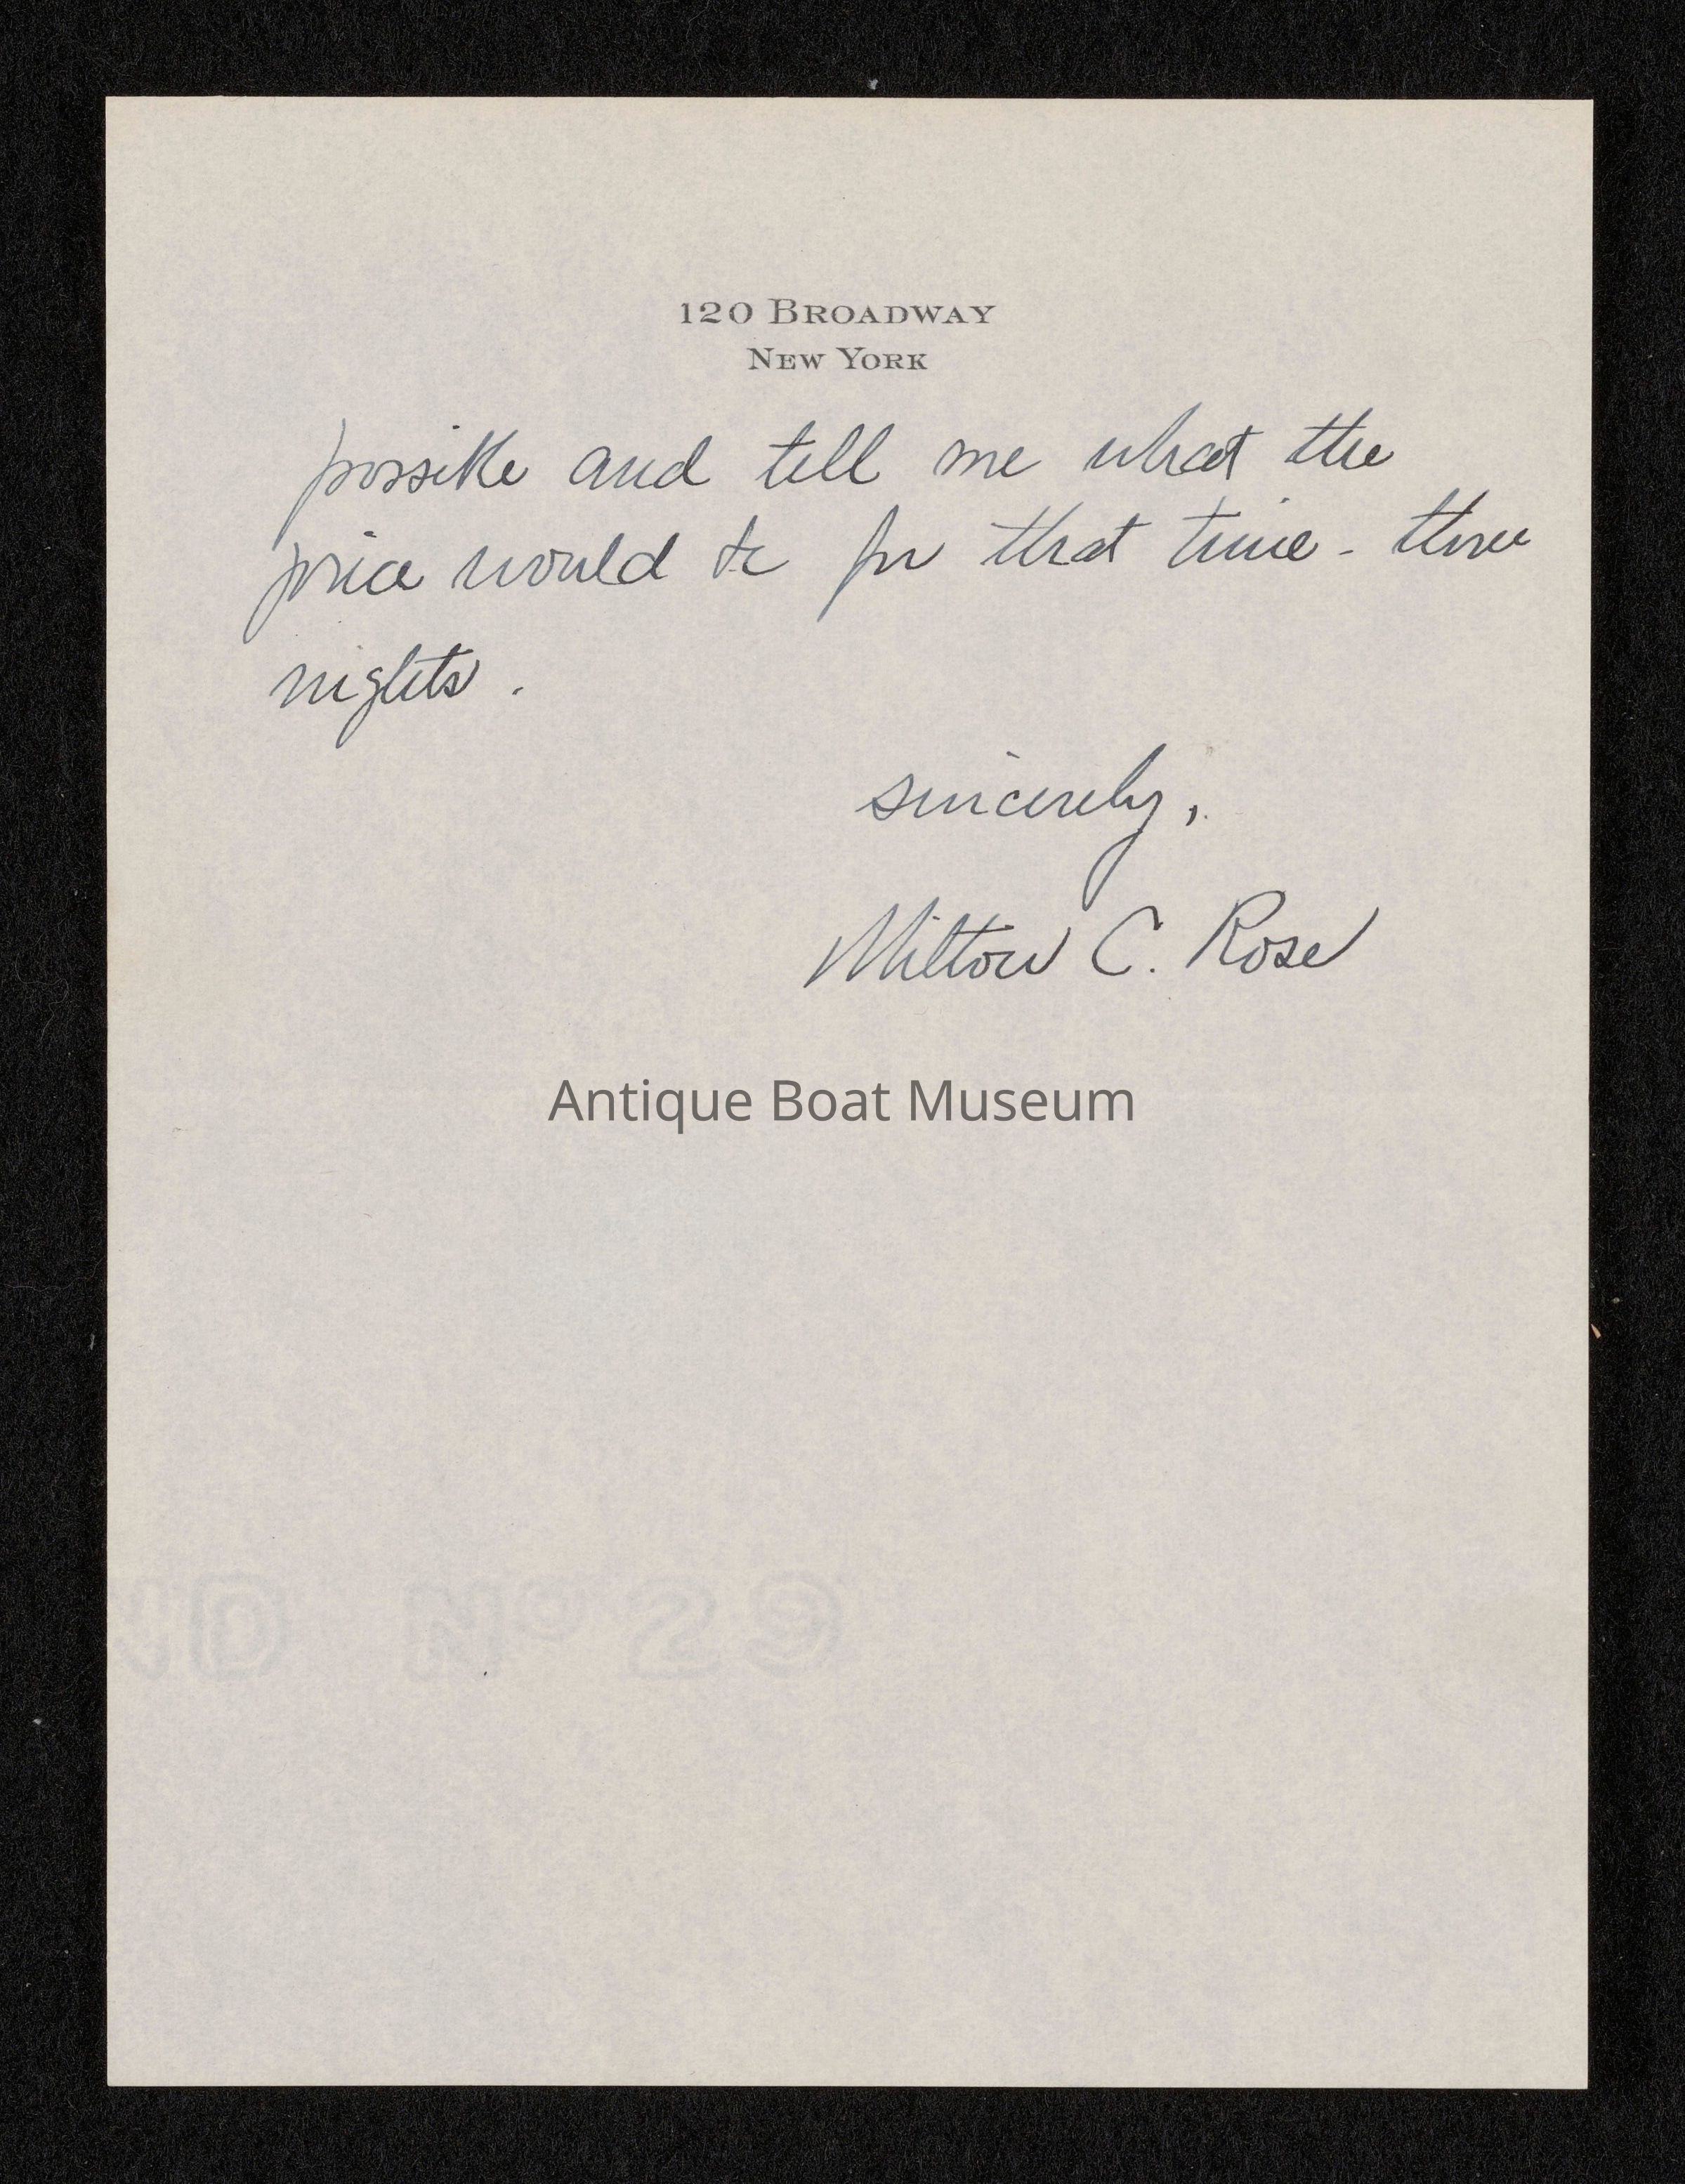 120 BROADWAY
NEW YORK
possible and tell me what the
price would be for that time - three
nights.
sincerely,
Milton C. Rose
Antique Boat Museum
D Nº 29